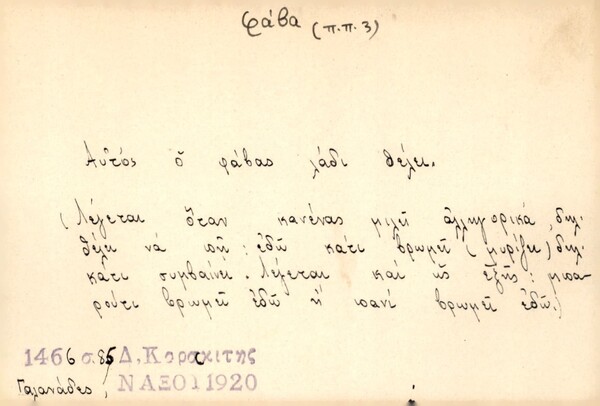 φάβα (π.π. 3)
Αὐτός ὁ φάβας λάδι θέλει.
(Λέγεται ὅταν κανένας μιλῇ ἀλληγορικά, δηλ.
θέλει νά πῇ: ἐδῶ κάτι βρωμεῖ (μυρίζει) δηλ.
κάτι συμβαίνει. Λέγεται καί ὡς ἑξῆς: μπα-
ρούτι βρωμεῖ ἐδῶ ἤ πανί βρωμεῖ ἐδῶ.)
1466 σ. Δ. Κορακίτης
Γαλανάδες, ΝΑΞΟΥ 1920